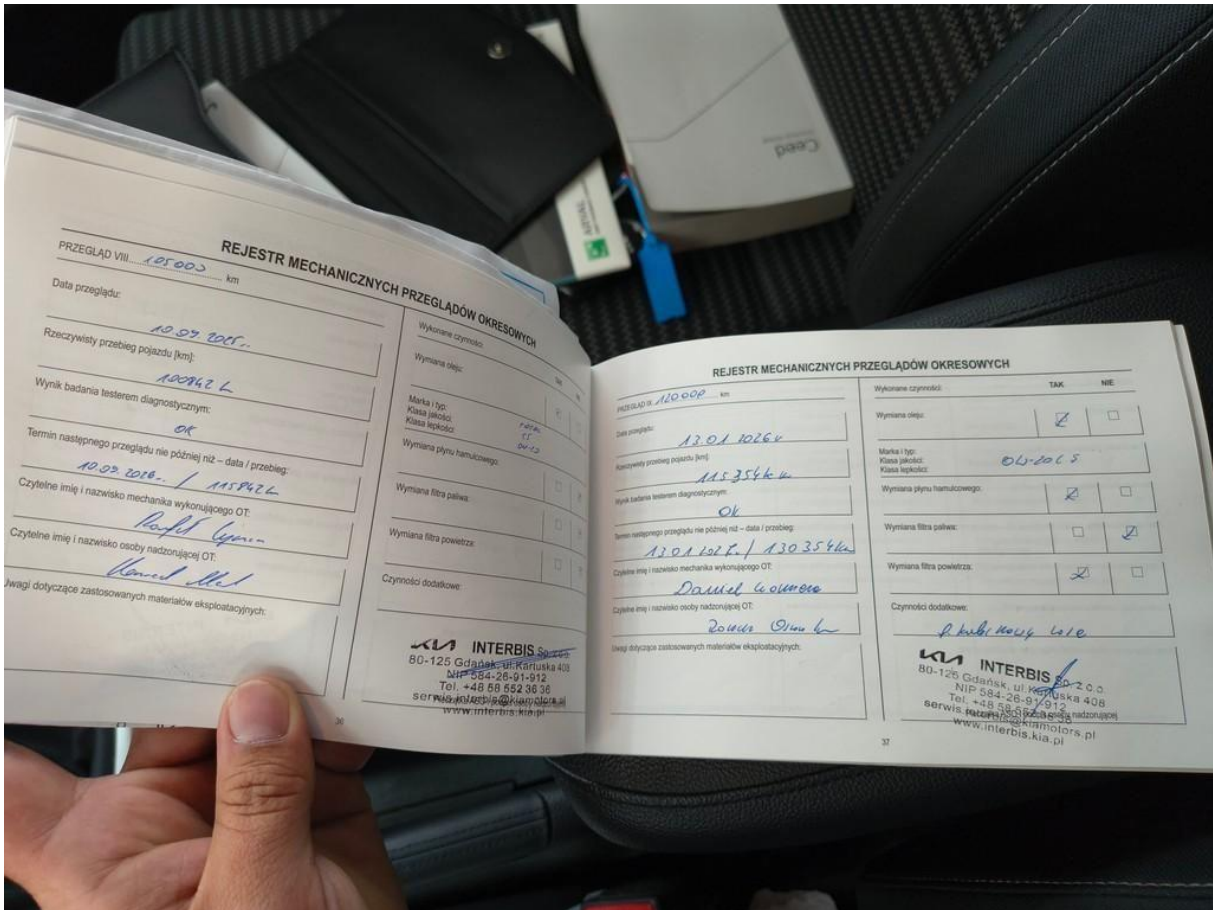 Ceed
REJESTR MECHANICZNYCH PRZEGLĄDÓW OKRESOWYCH
PRZEGLĄD VIII 105000 km
Data przeglądu:
10.09.2025r.
Rzeczywisty przebieg pojazdu [km]:
100842
Wynik badania testerem diagnostycznym:
OK
Termin następnego przeglądu nie później niż – data / przebieg:
10.09.2026r. / 115842
Czytelne imię i nazwisko mechanika wykonującego OT:
Czytelne imię i nazwisko osoby nadzorującej OT:
Uwagi dotyczące zastosowanych materiałów eksploatacyjnych:
Wykonane czynności:
TAK
Wymiana oleju:
Marka i typ:
Klasa jakości:
Klasa lepkości:
Wymiana płynu hamulcowego:
Wymiana filtra paliwa:
Wymiana filtra powietrza:
Czynności dodatkowe:
KIA INTERBIS Sp. z o.o.
80-125 Gdańsk, ul. Kartuska 408
NIP 584-26-91-912
Tel. +48 58 552 36 36
serwis.interbis@kiamotors.pl
www.interbis.kia.pl
36
REJESTR MECHANICZNYCH PRZEGLĄDÓW OKRESOWYCH
PRZEGLĄD IX 120000 km
Data przeglądu:
13.01.2026r
Rzeczywisty przebieg pojazdu [km]:
115354km
Wynik badania testerem diagnostycznym:
OK
Termin następnego przeglądu nie później niż – data / przebieg:
13.01.2027r. / 130354km
Czytelne imię i nazwisko mechanika wykonującego OT:
Daniel
Czytelne imię i nazwisko osoby nadzorującej OT:
Uwagi dotyczące zastosowanych materiałów eksploatacyjnych:
Wykonane czynności: TAK NIE
Wymiana oleju:
Marka i typ:
Klasa jakości:
Klasa lepkości:
OW-20 C5
Wymiana płynu hamulcowego:
Wymiana filtra paliwa:
Wymiana filtra powietrza:
Czynności dodatkowe:
KIA INTERBIS Sp. z o.o.
80-125 Gdańsk, ul. Kartuska 408
NIP 584-26-91-912
Tel. +48 58 552 36 36
serwis.interbis@kiamotors.pl
www.interbis.kia.pl
37